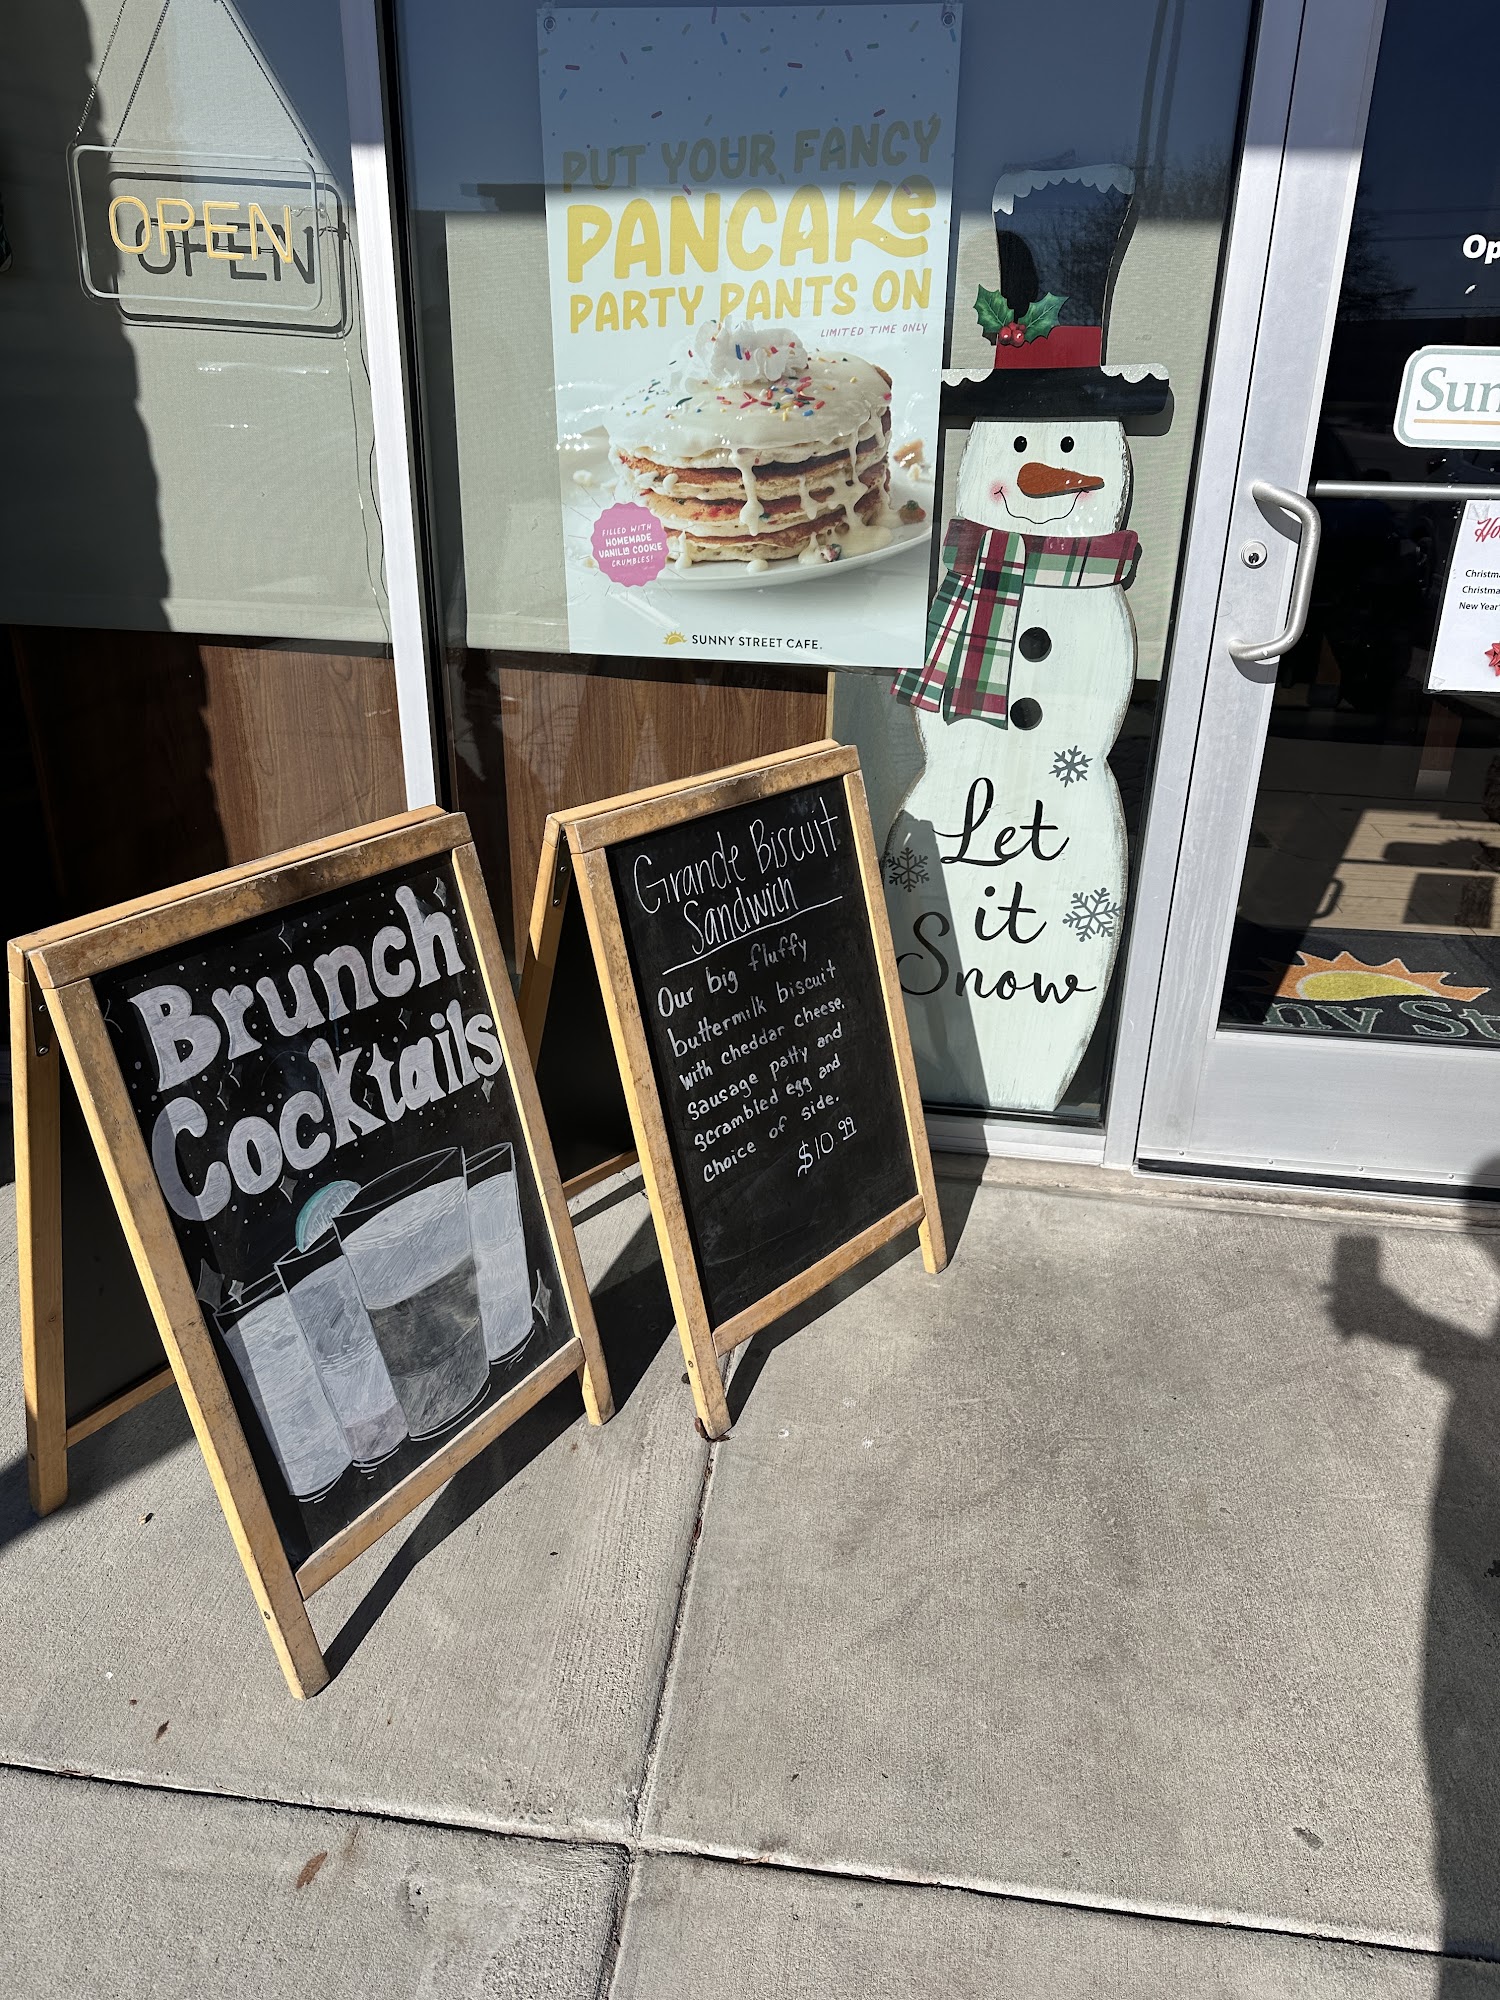 OPEN
PUT YOUR FANCY
PANCAKE
PARTY PANTS ON
LIMITED TIME ONLY
FILLED WITH
HOMEMADE
VANILLA COOKIE
CRUMBLES!
SUNNY STREET CAFE
Let
it
Snow
Brunch
Cocktails
Grande Biscuit
Sandwich
Our big fluffy
buttermilk biscuit
with cheddar cheese,
sausage patty and
scrambled egg and
choice of side.
$10.99
Op
Sun
Christm
Christma
New Year'
ny St